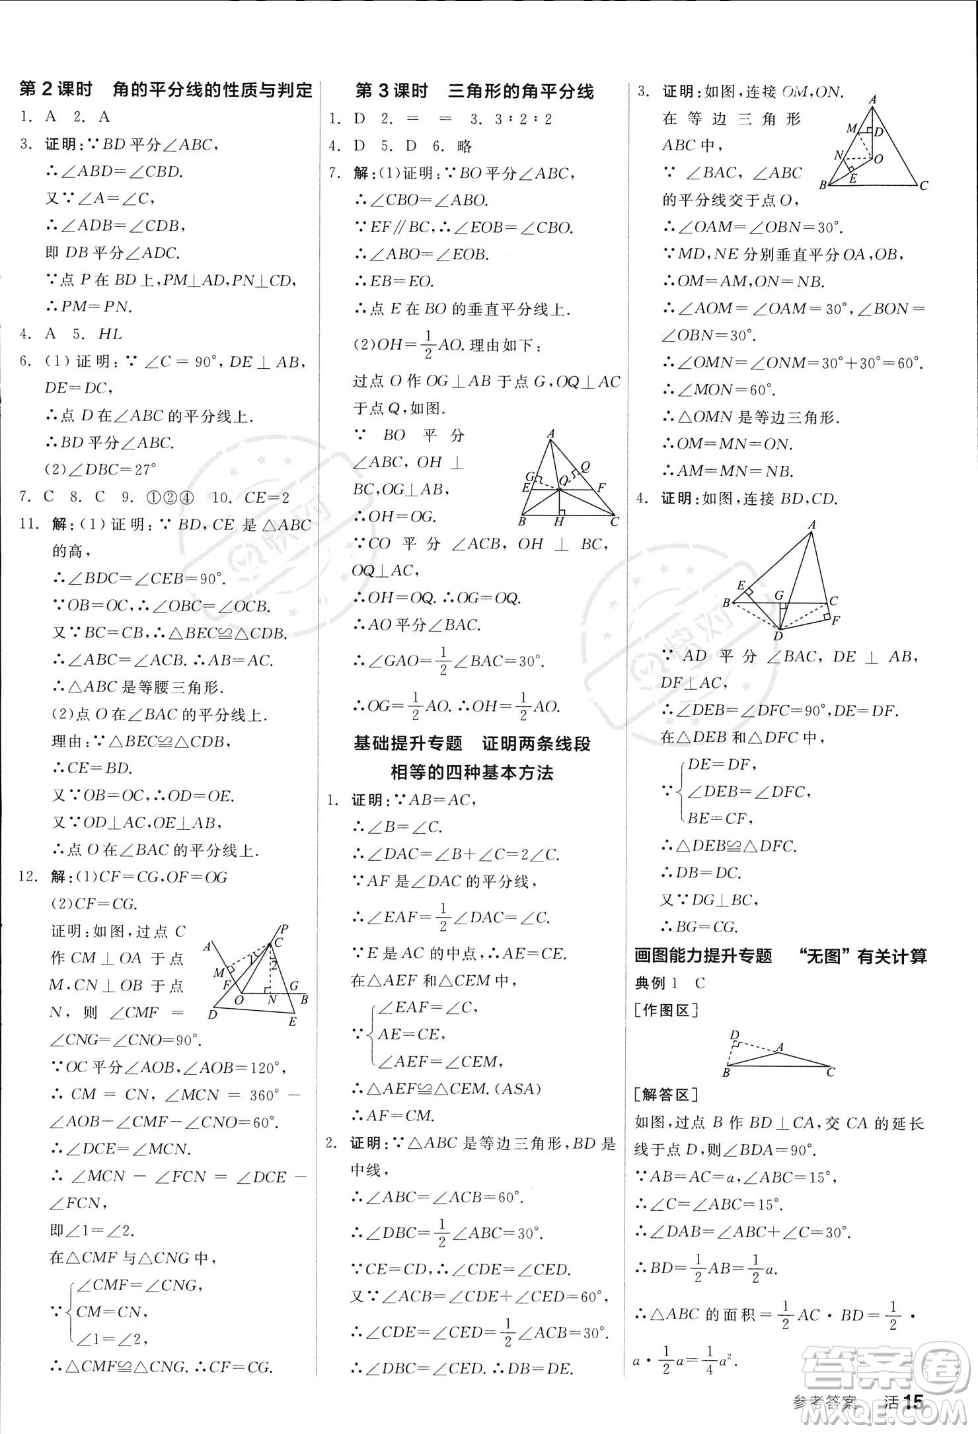 第2课时 角的平分线的性质与判定
1. A 2. A
3. 证明:∵BD平分∠ABC,
∴∠ABD=∠CBD.
又∵∠A=∠C,
∴∠ADB=∠CDB,
即DB平分∠ADC.
∵点P在BD上,PM⊥AD,PN⊥CD,
∴PM=PN.
4. A 5. HL
6. (1)证明:∵∠C=90°,DE⊥AB,
DE=DC,
∴点D在∠ABC的平分线上.
∴BD平分∠ABC.
(2)∠DBC=27°
7. C 8. C 9. ①②④ 10. CE=2
11. 解:(1)证明:∵BD,CE是△ABC
的高,
∴∠BDC=∠CEB=90°.
∵OB=OC,∴∠OBC=∠OCB.
又∵BC=CB,∴△BEC≌△CDB.
∴∠ABC=∠ACB.∴AB=AC.
∴△ABC是等腰三角形.
(2)点O在∠BAC的平分线上.
理由:∵△BEC≌△CDB,
∴CE=BD.
又∵OB=OC,∴OD=OE.
又∵OD⊥AC,OE⊥AB,
∴点O在∠BAC的平分线上.
12. 解:(1)CF=CG,OF=OG
(2)CF=CG.
证明:如图,过点C
作CM⊥OA于点
M,CN⊥OB于点
N,则∠CMF=
∠CNG=∠CNO=90°.
∵OC平分∠AOB,∠AOB=120°,
∴CM=CN,∠MCN=360°-
∠AOB-∠CMF-∠CNO=60°.
∴∠DCE=∠MCN.
∴∠MCN-∠FCN=∠DCE-
∠FCN,
即∠1=∠2.
在△CMF与△CNG中,
∠CMF=∠CNG,
∵ CM=CN,
∠1=∠2,
∴△CMF≌△CNG.∴CF=CG.
A M F O N G B P C 1 2 D E
第3课时 三角形的角平分线
1. D 2. = = 3. 3:2:2
4. D 5. D 6. 略
7. 解:(1)证明:∵BO平分∠ABC,
∴∠CBO=∠ABO.
∵EF∥BC,∴∠EOB=∠CBO.
∴∠ABO=∠EOB.
∴EB=EO.
∴点E在BO的垂直平分线上.
(2)OH=1/2AO.理由如下:
过点O作OG⊥AB于点G,OQ⊥AC
于点Q,如图.
∵BO平分
∠ABC,OH⊥
BC,OG⊥AB,
∴OH=OG.
∵CO平分∠ACB,OH⊥BC,
OQ⊥AC,
∴OH=OQ.∴OG=OQ.
∴AO平分∠BAC.
∴∠GAO=1/2∠BAC=30°.
∴OG=1/2AO.∴OH=1/2AO.
A G E Q O F B H C
基础提升专题 证明两条线段
相等的四种基本方法
1. 证明:∵AB=AC,
∴∠B=∠C.
∴∠DAC=∠B+∠C=2∠C.
∵AF是∠DAC的平分线,
∴∠EAF=1/2∠DAC=∠C.
∵E是AC的中点,∴AE=CE.
在△AEF和△CEM中,
∠EAF=∠C,
∵ AE=CE,
∠AEF=∠CEM,
∴△AEF≌△CEM.(ASA)
∴AF=CM.
2. 证明:∵△ABC是等边三角形,BD是
中线,
∴∠ABC=∠ACB=60°.
∴∠DBC=1/2∠ABC=30°.
∵CE=CD,∴∠CDE=∠CED.
又∵∠ACB=∠CDE+∠CED,
∴∠CDE=∠CED=1/2∠ACB=30°.
∴∠DBC=∠CED.∴DB=DE.
3. 证明:如图,连接OM,ON.
在等边三角形
ABC中,
∵∠BAC,∠ABC
的平分线交于点O,
∴∠OAM=∠OBN=30°.
∵MD,NE分别垂直平分OA,OB,
∴OM=AM,ON=NB.
∴∠AOM=∠OAM=30°,∠BON=
∠OBN=30°.
∴∠OMN=∠ONM=30°+30°=60°.
∴∠MON=60°.
∴△OMN是等边三角形.
∴OM=MN=ON.
∴AM=MN=NB.
A M D N O B E C
4. 证明:如图,连接BD,CD.
A E B G C D F
∵AD平分∠BAC,DE⊥AB,
DF⊥AC,
∴∠DEB=∠DFC=90°,DE=DF.
在△DEB和△DFC中,
DE=DF,
∵ ∠DEB=∠DFC,
BE=CF,
∴△DEB≌△DFC.
∴DB=DC.
又∵DG⊥BC,
∴BG=CG.
画图能力提升专题 “无图”有关计算
典例1 C
[作图区]
D A B C
[解答区]
如图,过点B作BD⊥CA,交CA的延长
线于点D,则∠BDA=90°.
∵AB=AC=a,∠ABC=15°,
∴∠C=∠ABC=15°.
∴∠DAB=∠ABC+∠C=30°.
∴BD=1/2AB=1/2a.
∴△ABC的面积=1/2AC·BD=1/2·
a·1/2a=1/4a².
参考答案 活15
答案圈
MXQE.COM